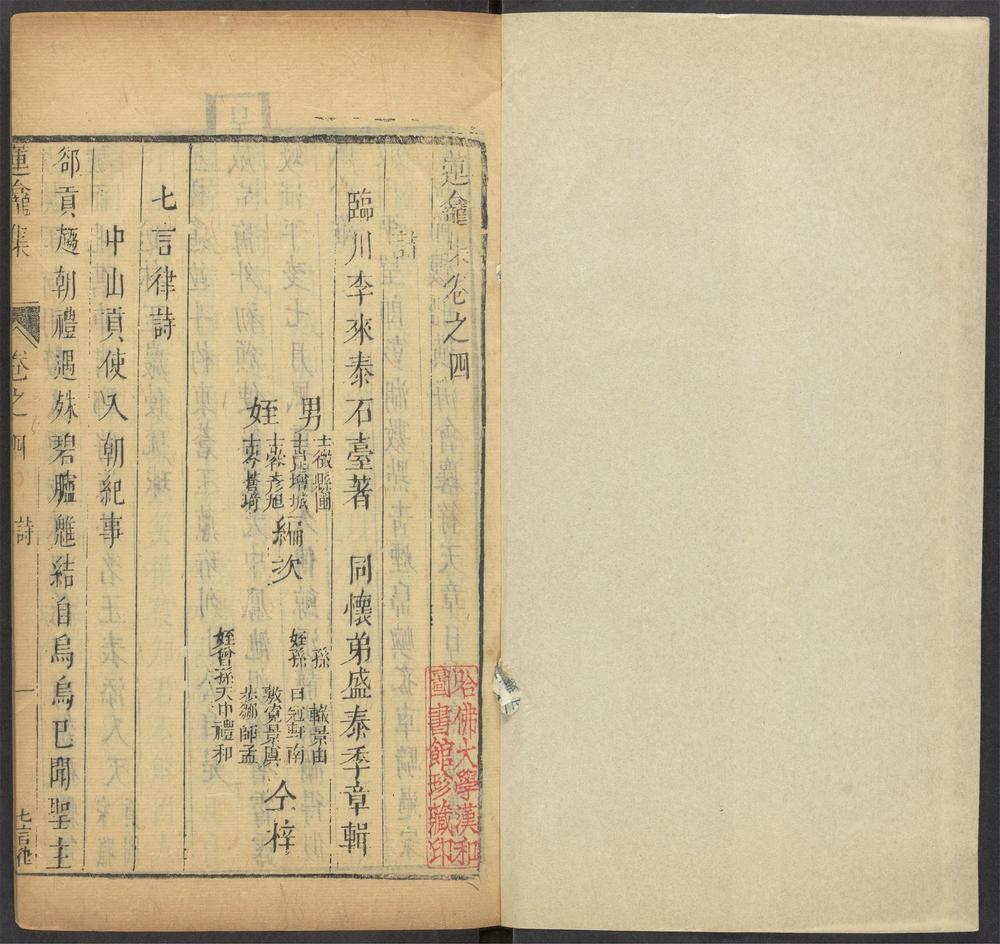 蓮龕集卷之四
詩
臨川李來泰石臺著 同懷弟盛泰季章輯
男 士徵縣圃
士 墉城
姪 士 彥旭
士 耆琦
編次
孫 景由
姪孫 日冠軒南
敷寬景眞
步鄒師孟
姪曾孫天中禮和
仝梓
七言律詩
中山貢使入朝紀事
郤貢趨朝禮遇殊碧臚 結自烏烏已聞聖主
蓮龕集 卷之四 詩 一 七言律
哈佛大學漢和
圖書館珍藏印